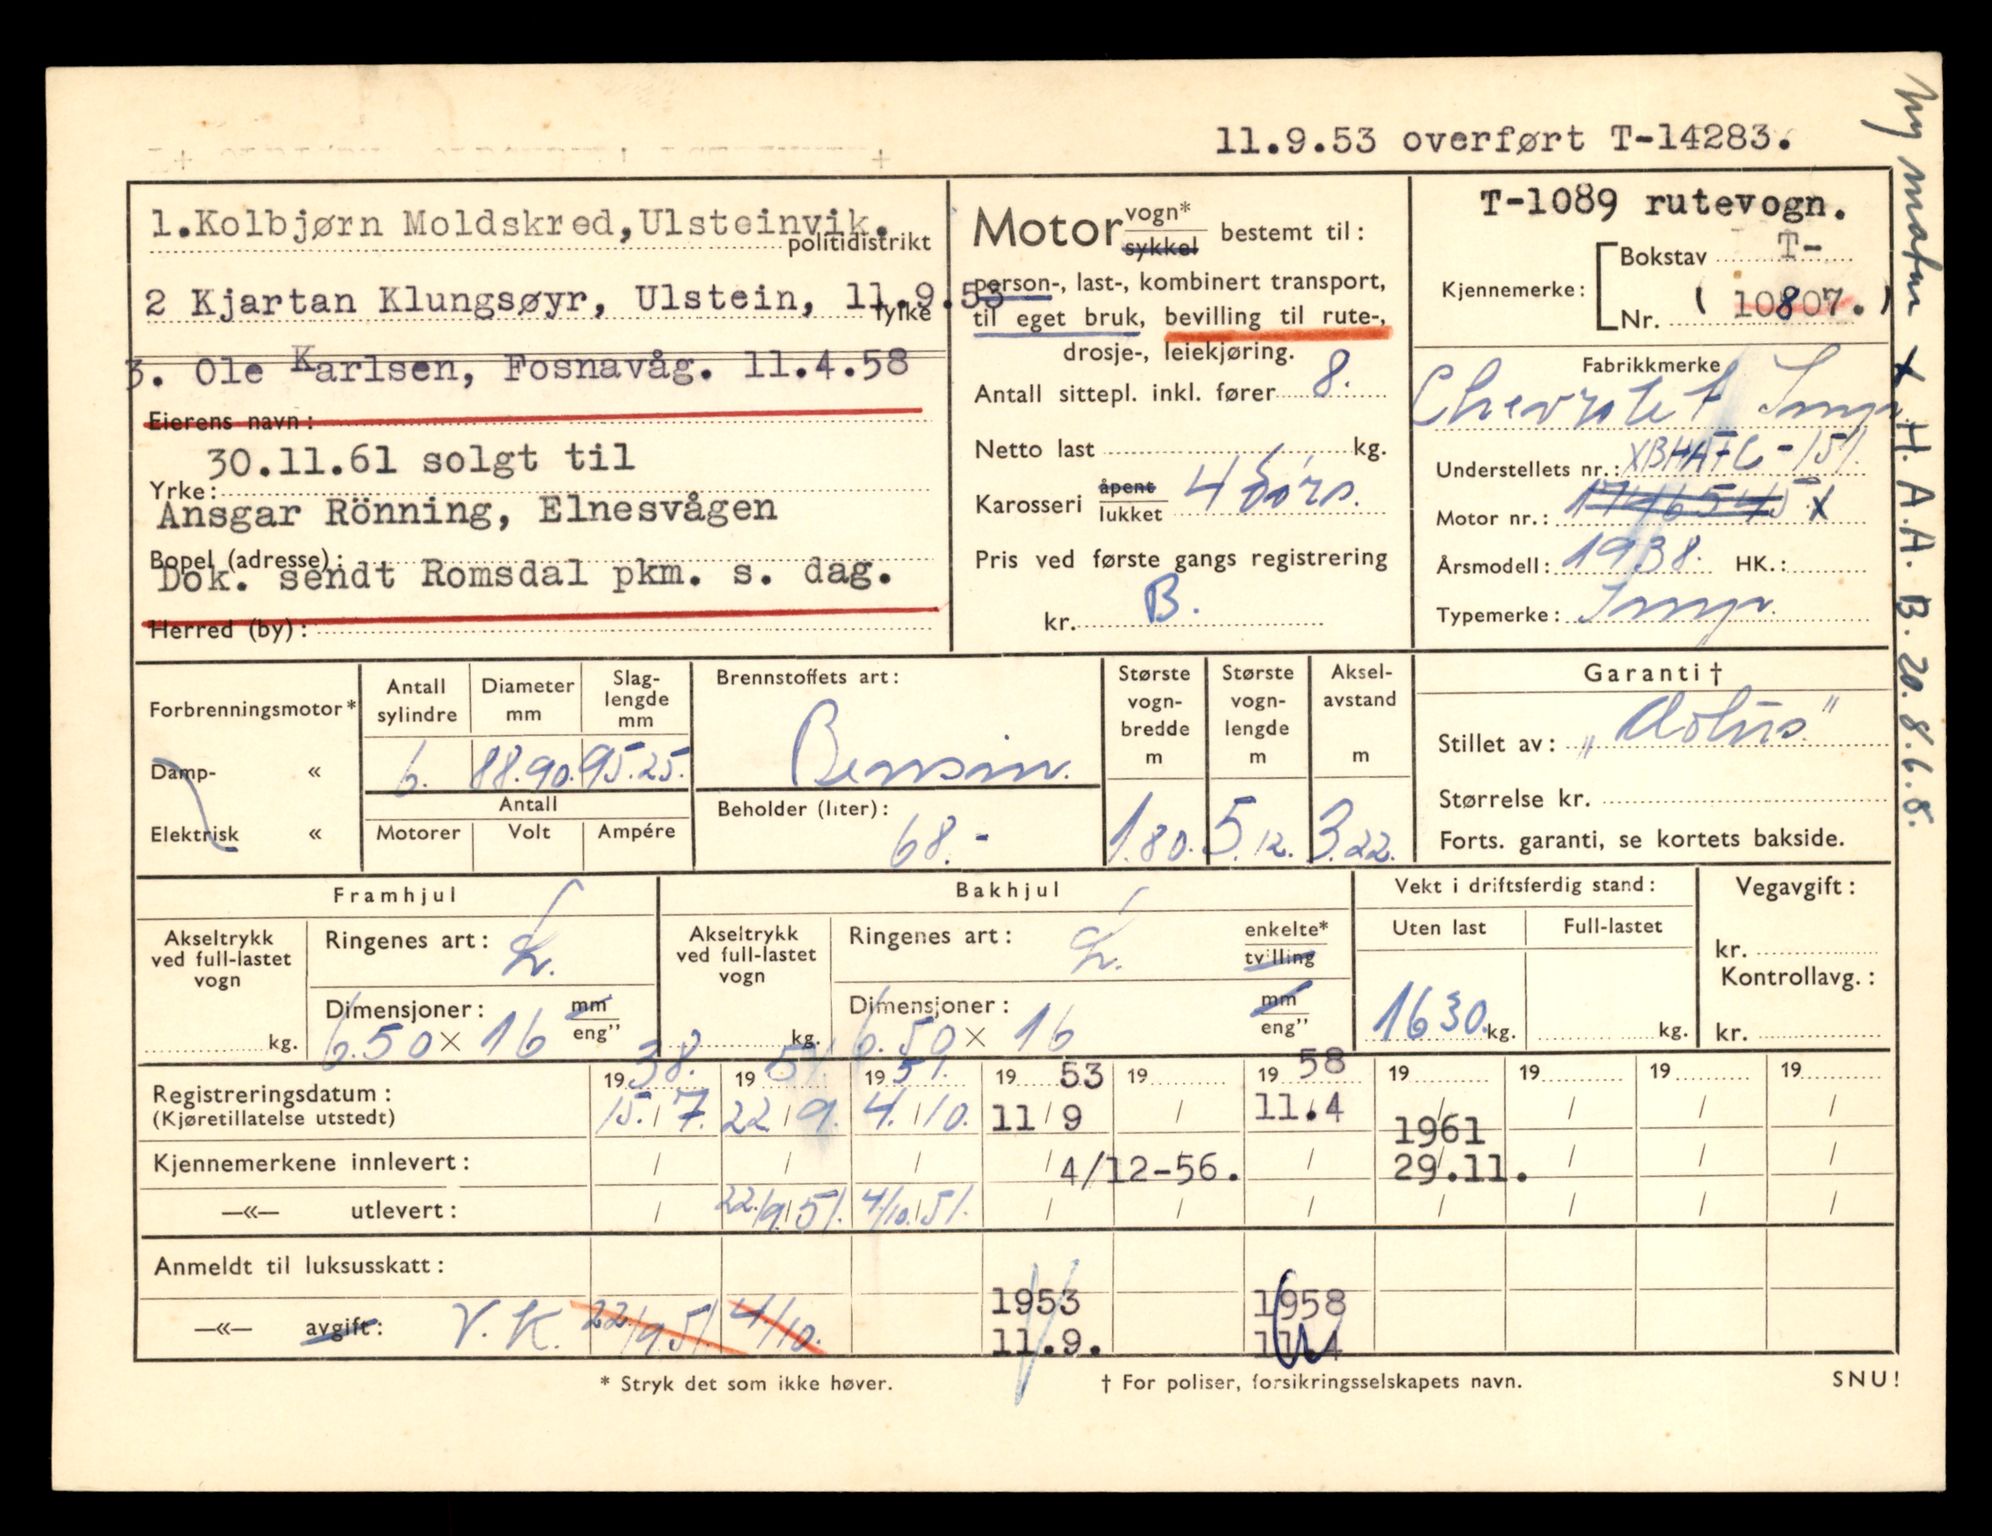 11.9.53 overført T-14283.
1.Kolbjørn Moldskred,Ulsteinvik.
politidistrikt
2 Kjartan Klungsøyr, Ulstein, 11.9.53
fylke
3. Ole Karlsen, Fosnavåg. 11.4.58
Eierens navn:
30.11.61 solgt til
Yrke:
Ansgar Rönning, Elnesvågen
Bopel (adresse):
Dok. sendt Romsdal pkm. s. dag.
Herred (by):
Motor vogn* sykkel bestemt til:
person-, last-, kombinert transport,
til eget bruk, bevilling til rute-,
drosje-, leiekjøring.
Antall sittepl. inkl. fører 8.
Netto last kg.
Karosseri åpent lukket 4 dörs.
Pris ved første gangs registrering
kr. B.
T-1089 rutevogn.
Kjennemerke: Bokstav T-
Nr. (10807.)
Fabrikkmerke
Chevrolet Imp.
Understellets nr.: XBHAFC-151.
Motor nr.: 1746545 x
Årsmodell: 1938. HK.:
Typemerke: Imp.
Ny motor x H.A.A.B. 20.8.6.8.
Forbrenningsmotor*
Damp- «
Elektrisk «
Antall sylindre 6.
Diameter mm 88.90.
Slaglengde mm 95.25.
Antall
Motorer Volt Ampére
Brennstoffets art:
Bensin.
Beholder (liter):
68.-
Største vognbredde m 1.80.
Største vognlengde m 5.12.
Akselavstand m 3.22.
Garanti †
Stillet av:
Størrelse kr.
Forts. garanti, se kortets bakside.
Framhjul
Akseltrykk ved full-lastet vogn kg.
Ringenes art: L.
Dimensjoner: mm eng"
6.50 x 16
Bakhjul
Akseltrykk ved full-lastet vogn kg.
Ringenes art: L. enkelte* tvilling
Dimensjoner: mm eng"
6.50 x 16
Vekt i driftsferdig stand:
Uten last Full-lastet
1630. kg. kg.
Vegavgift:
kr.
Kontrollavg.:
kr.
19 38. 19 51. 19 51. 19 53 19 19 58 19 19 19 19
Registreringsdatum:
(Kjøretillatelse utstedt)
15./7. 22/9. 4./10. 11/9 / 11.4 / / / /
1961
Kjennemerkene innlevert: / / / / 4/12-56. / 29.11. / / /
—«— utlevert: / 22/9/51. 4/10/51. / / / / / / /
Anmeldt til luksusskatt:
—«— avgift: V.K. 22/9 51. 4/10. 1953 11.9. 1958 11.4
* Stryk det som ikke høver.
† For poliser, forsikringsselskapets navn.
SNU!